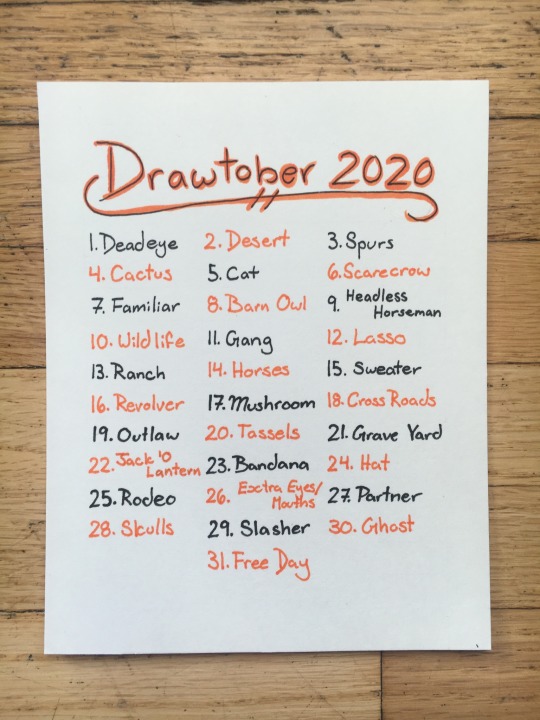 Drawtober 2020
1. Deadeye 2. Desert 3. Spurs
4. Cactus 5. Cat 6. Scarecrow
7. Familiar 8. Barn Owl 9. Headless Horseman
10. Wildlife 11. Gang 12. Lasso
13. Ranch 14. Horses 15. Sweater
16. Revolver 17. Mushroom 18. Cross Roads
19. Outlaw 20. Tassels 21. Grave Yard
22. Jack 'O Lantern 23. Bandana 24. Hat
25. Rodeo 26. Exctra Eyes/ Mouths 27. Partner
28. Skulls 29. Slasher 30. Ghost
31. Free Day